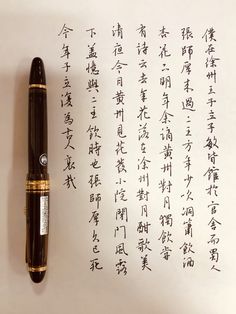 僕在徐州王子立子敏皆館於官舍而蜀人
張師厚來過二王方年少吹洞簫飲酒
杏花下明年余謫黃州對月獨飲嘗
有詩云去年花落在徐州對月酣歌美
清夜今日黃州見花發小院閉門風露
下蓋憶與二王飲時也張師厚久已死
今年子立復為古人哀哉